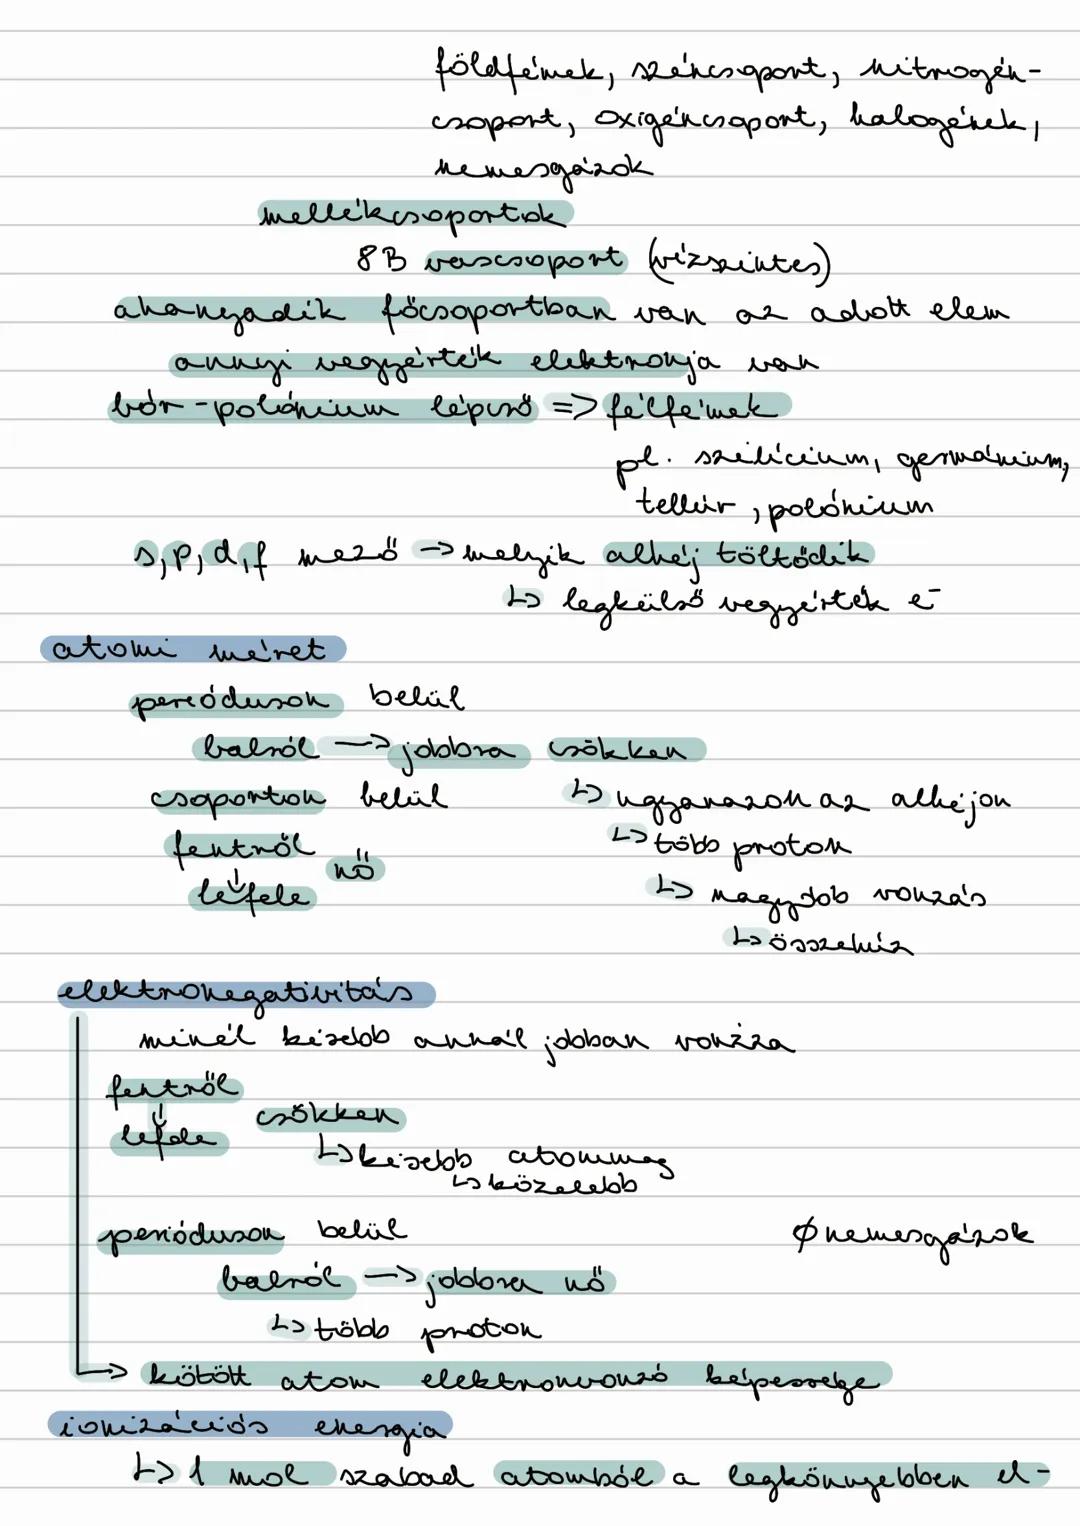 földfémek, széncsoport, nitrogén-
csoport, oxigéncsoport, halogének,
nemesgázok
mellékcsoportok
8B vascsoport (vízszintes)
ahanyadik főcsoportban van az adott elem
annyi vegyérték elektronja van
bór-polónium lépcső => félfémek
pl. szilícium, germánium,
tellúr, polónium
s, p, d, f mező -> melyik alhéj töltődik
↳ legkülső vegyérték e⁻
atomi méret
perióduson belül
balról -> jobbra csökken
csoporton belül ↳ ugyanazon az alhéjon
fentről ↳ több proton
↓ nő
lefele ↳ nagyobb vonzás
↳ összehúz
elektronegativitás
minél kisebb annál jobban vonzza
fentről
↓ csökken
lefele ↳ kisebb atommag
↳ közelebb
perióduson belül Ø nemesgázok
balról -> jobbra nő
↳ több proton
-> kötött atom elektronvonzó képessége
ionizációs energia
↳ 1 mol szabad atomból a legkönnyebben el-